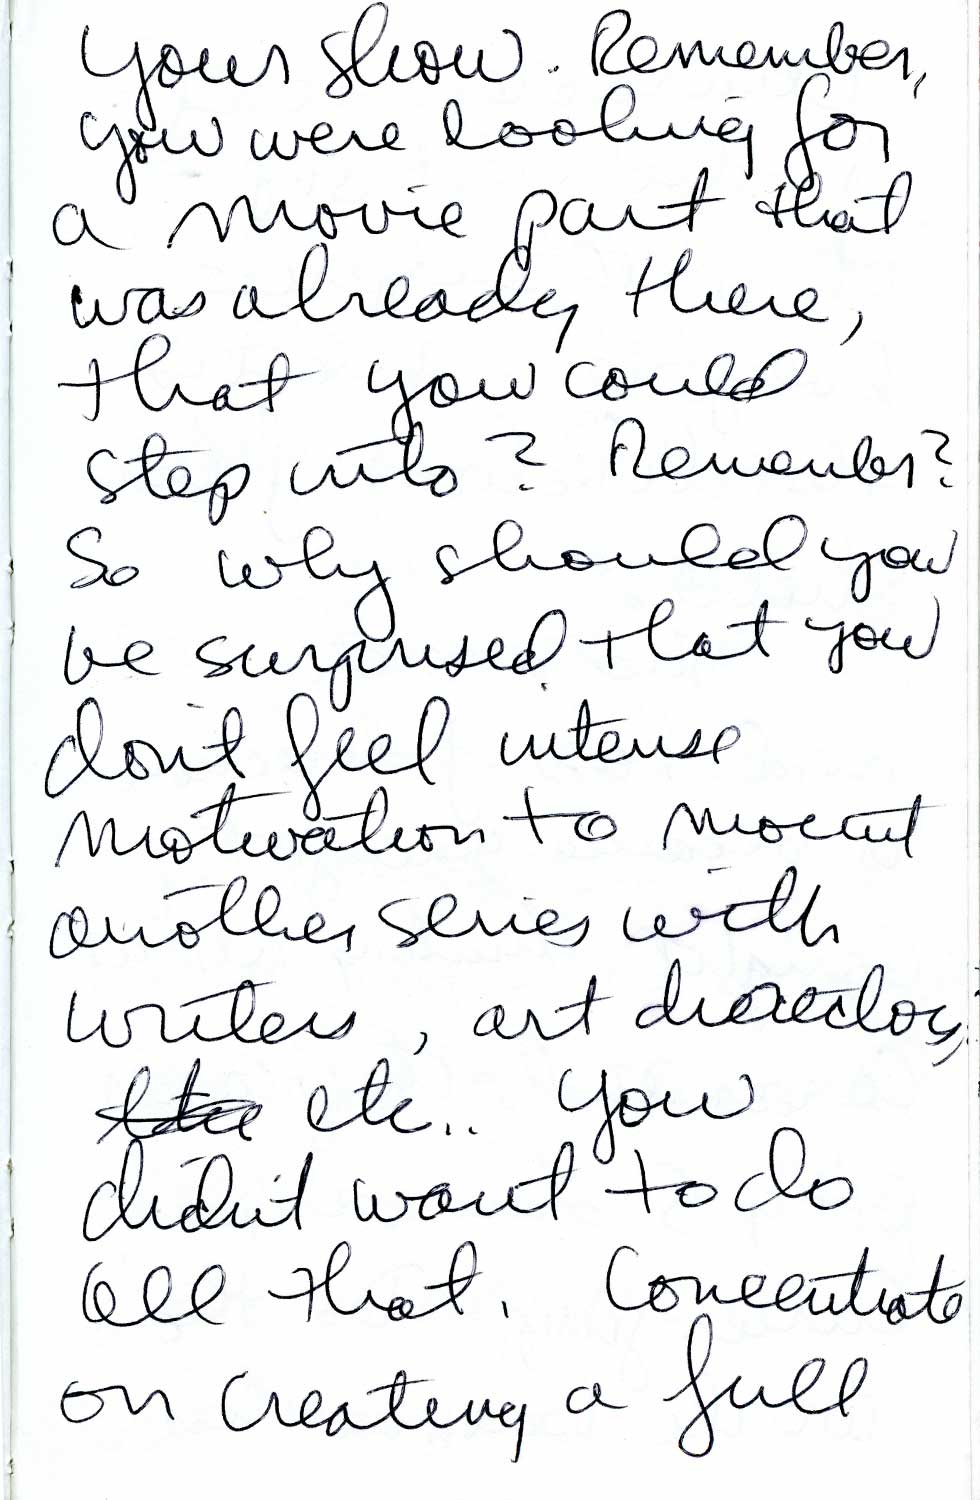 your show. Remember,
you were looking for
a movie part that
was already there,
that you could
step into? Remember?
So why should you
be surprised that you
don't feel intense
motivation to mount
another series with
writers, art directors,
etc.. You
didn't want to do
all that. Concentrate
on creating a full